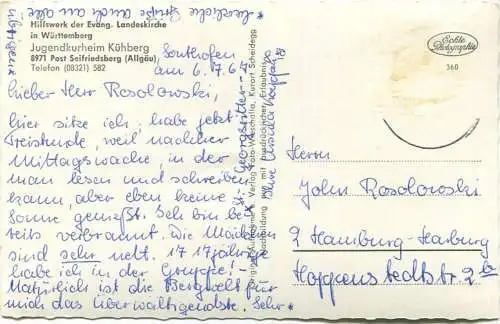 Hilfswerk der Evang. Landeskirche
in Württemberg
Jugendkurheim Kühberg
8971 Post Seifriedsberg (Allgäu)
Telefon (08321) 582
Sonthofen
am 6.7.67
Lieber Herr Rosolowski,
hier sitze ich, habe jetzt
Freistunde, weil nachher
Mittagswache, in der
man lesen und schreiben
kann, aber eben keine
Sonne genießt. Sehr bin be
reits verbrannt. Die Mädchen
sind sehr nett. 17 17jährige
habe ich in der Gruppe!
Natürlich ist die Bergwelt für
mich das Überwältigendste. Sehr*
*herzliche Grüße auch an alle
übrigen
Ihre Ursula
Echte
Photographie
360
Herrn
John Rosolowski
2 Hamburg-Harburg
Hoppenstedtstr. 2a